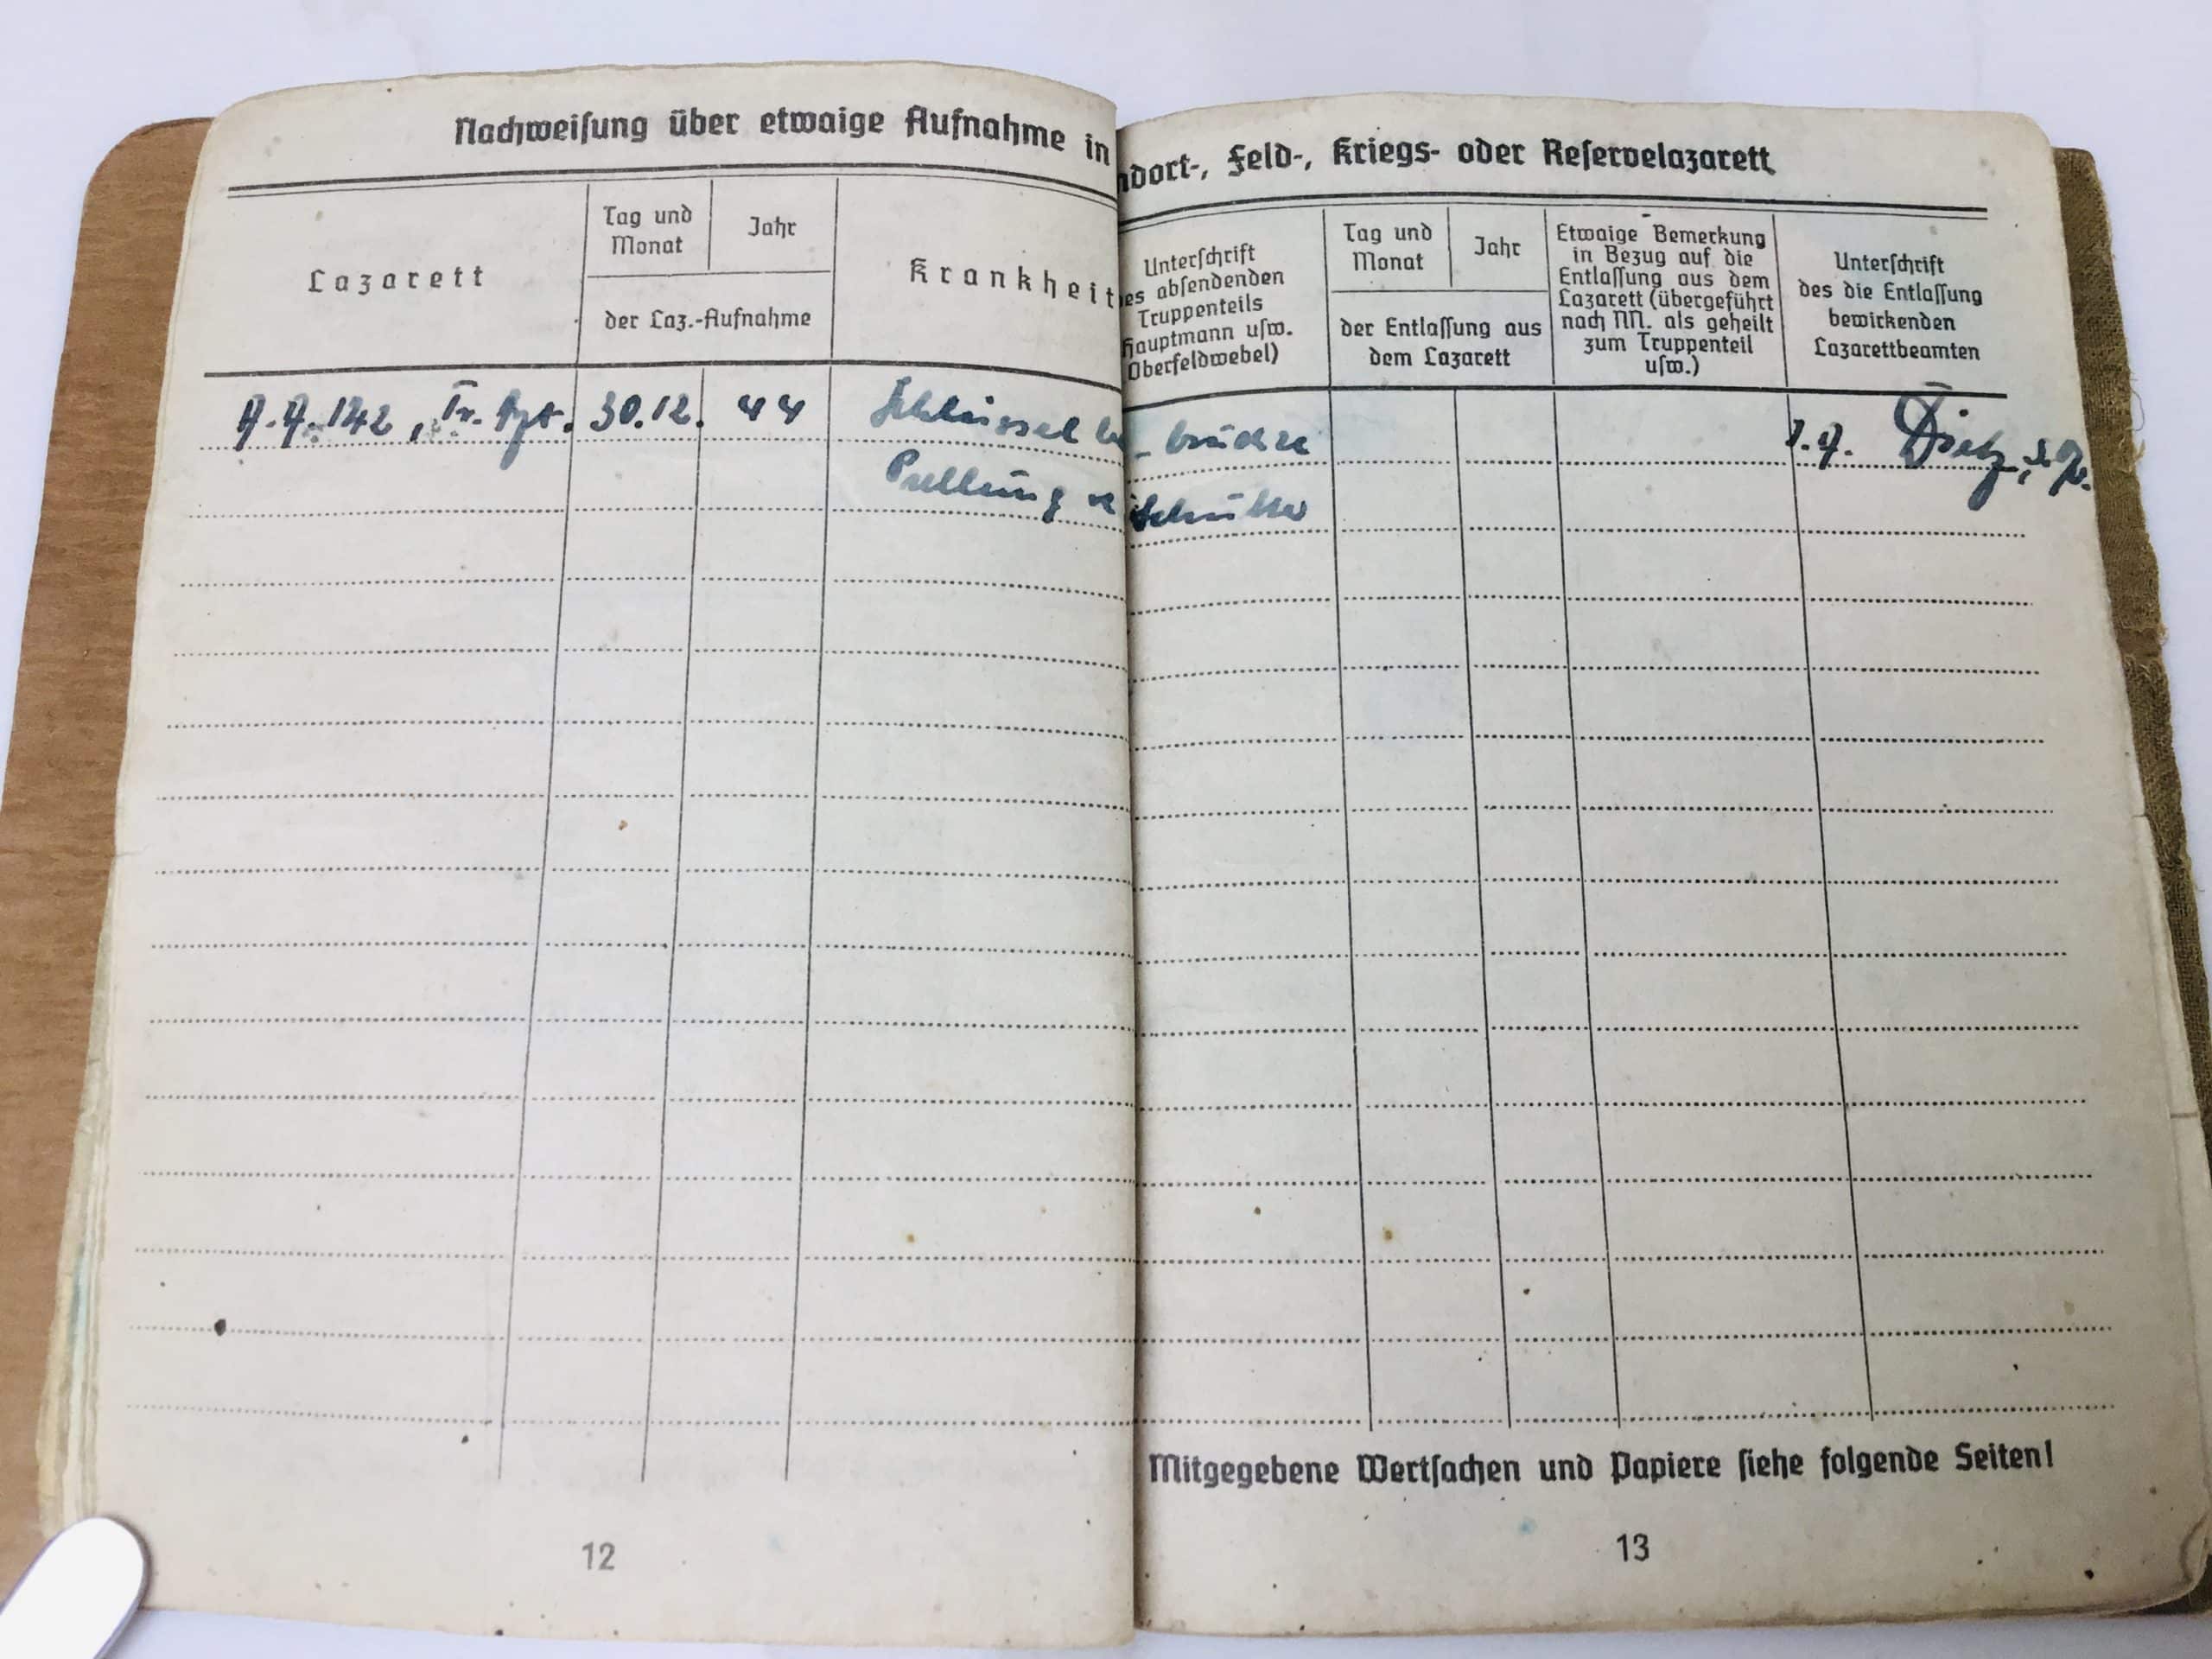 Nachweiſung über etwaige Aufnahme in
ndort-, Feld-, Kriegs- oder Reſervelazarett
Lazarett
Tag und
Monat
Jahr
der Laz.-Aufnahme
Krankheit
Unterſchrift
des abſendenden
Truppenteils
Hauptmann uſw.
Oberfeldwebel)
Tag und
Monat
Jahr
der Entlaſſung aus
dem Lazarett
Etwaige Bemerkung
in Bezug auf die
Entlaſſung aus dem
Lazarett (übergeführt
nach NN. als geheilt
zum Truppenteil
uſw.)
Unterſchrift
des die Entlaſſung
bewirkenden
Lazarettbeamten
A.A. 142, Tr. Arzt. 30.12. 44 Schlüssel - brüche
Prellung Schulter
Mitgegebene Wertſachen und Papiere ſiehe folgende Seiten!
12
13